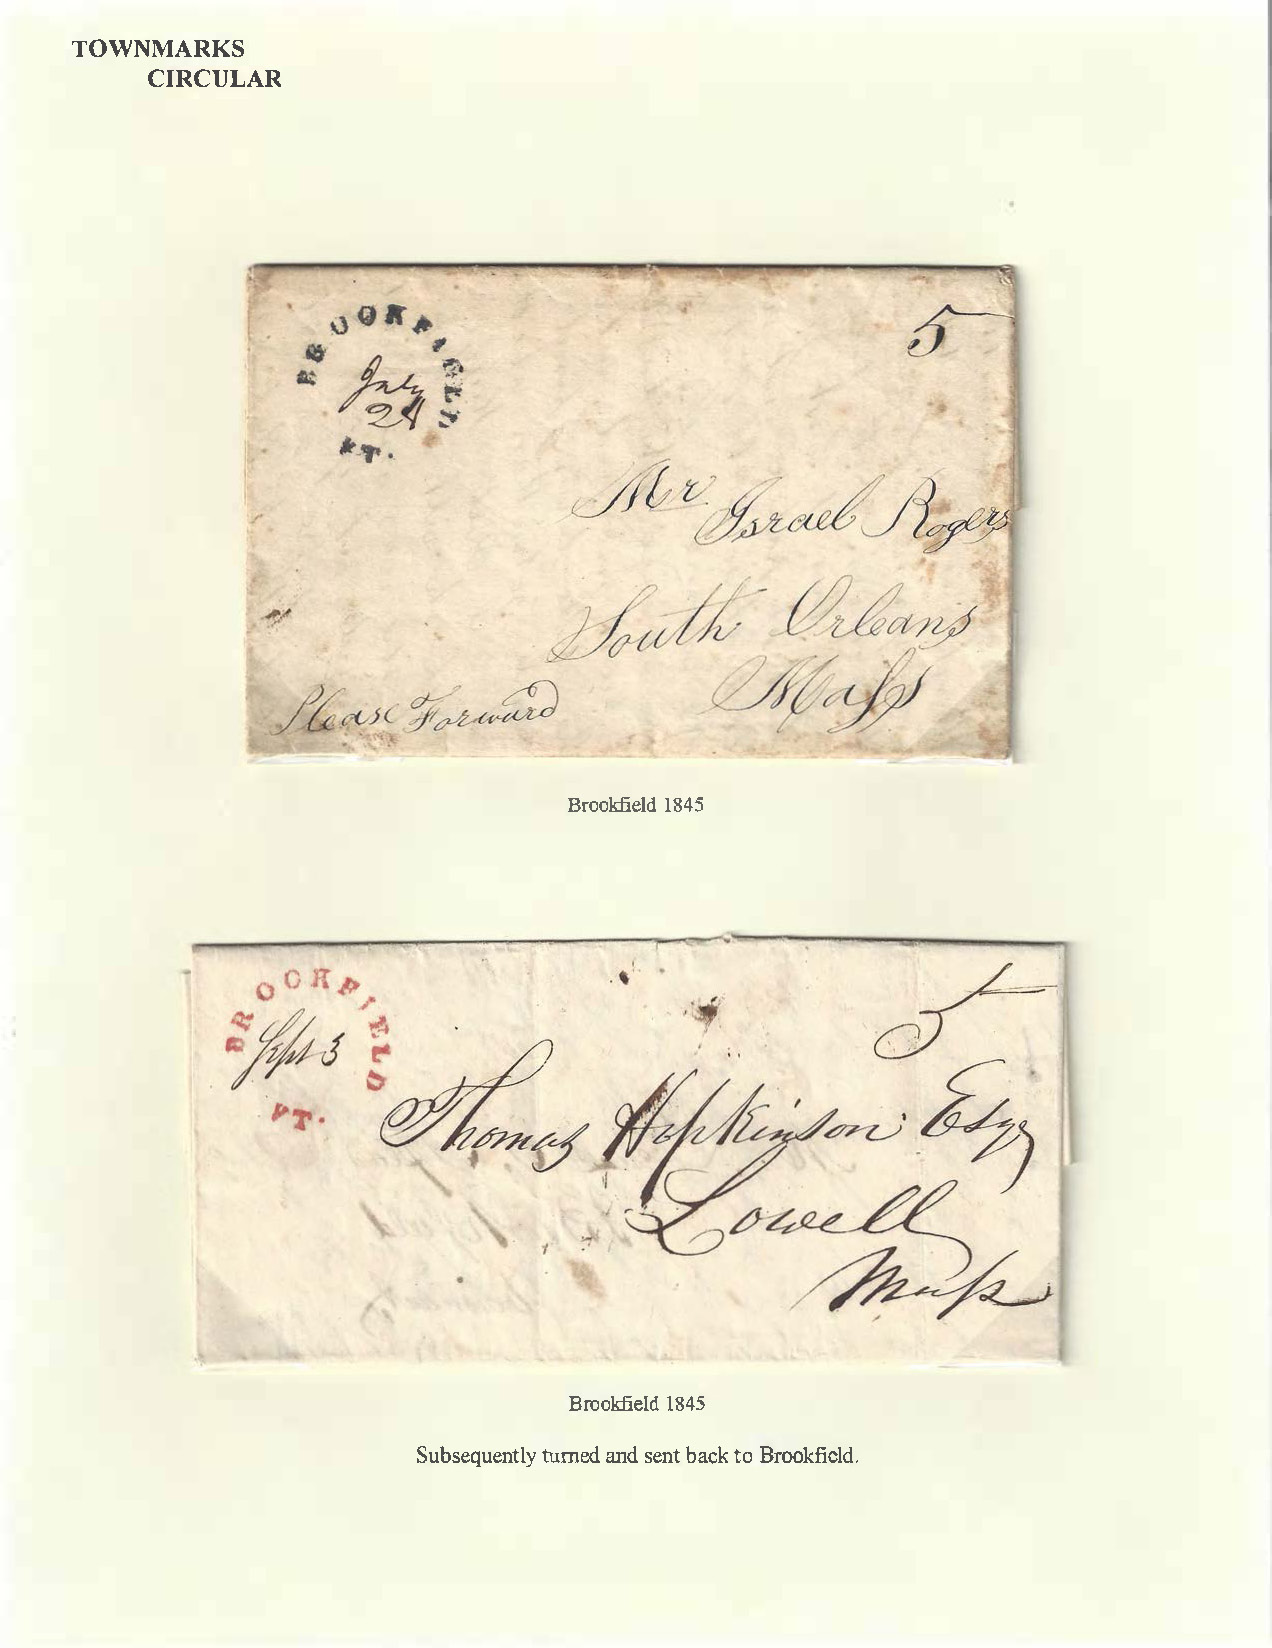 TOWNMARKS
CIRCULAR
BROOKFIELD
VT.
July
24
5
Mr
Israel Rogers
South Orleans
Mass
Please Forward
Brookfield 1845
BROOKFIELD
VT.
Sept 3
5
Thomas Hopkinson Esqr
Lowell
Mass
Brookfield 1845
Subsequently turned and sent back to Brookfield.